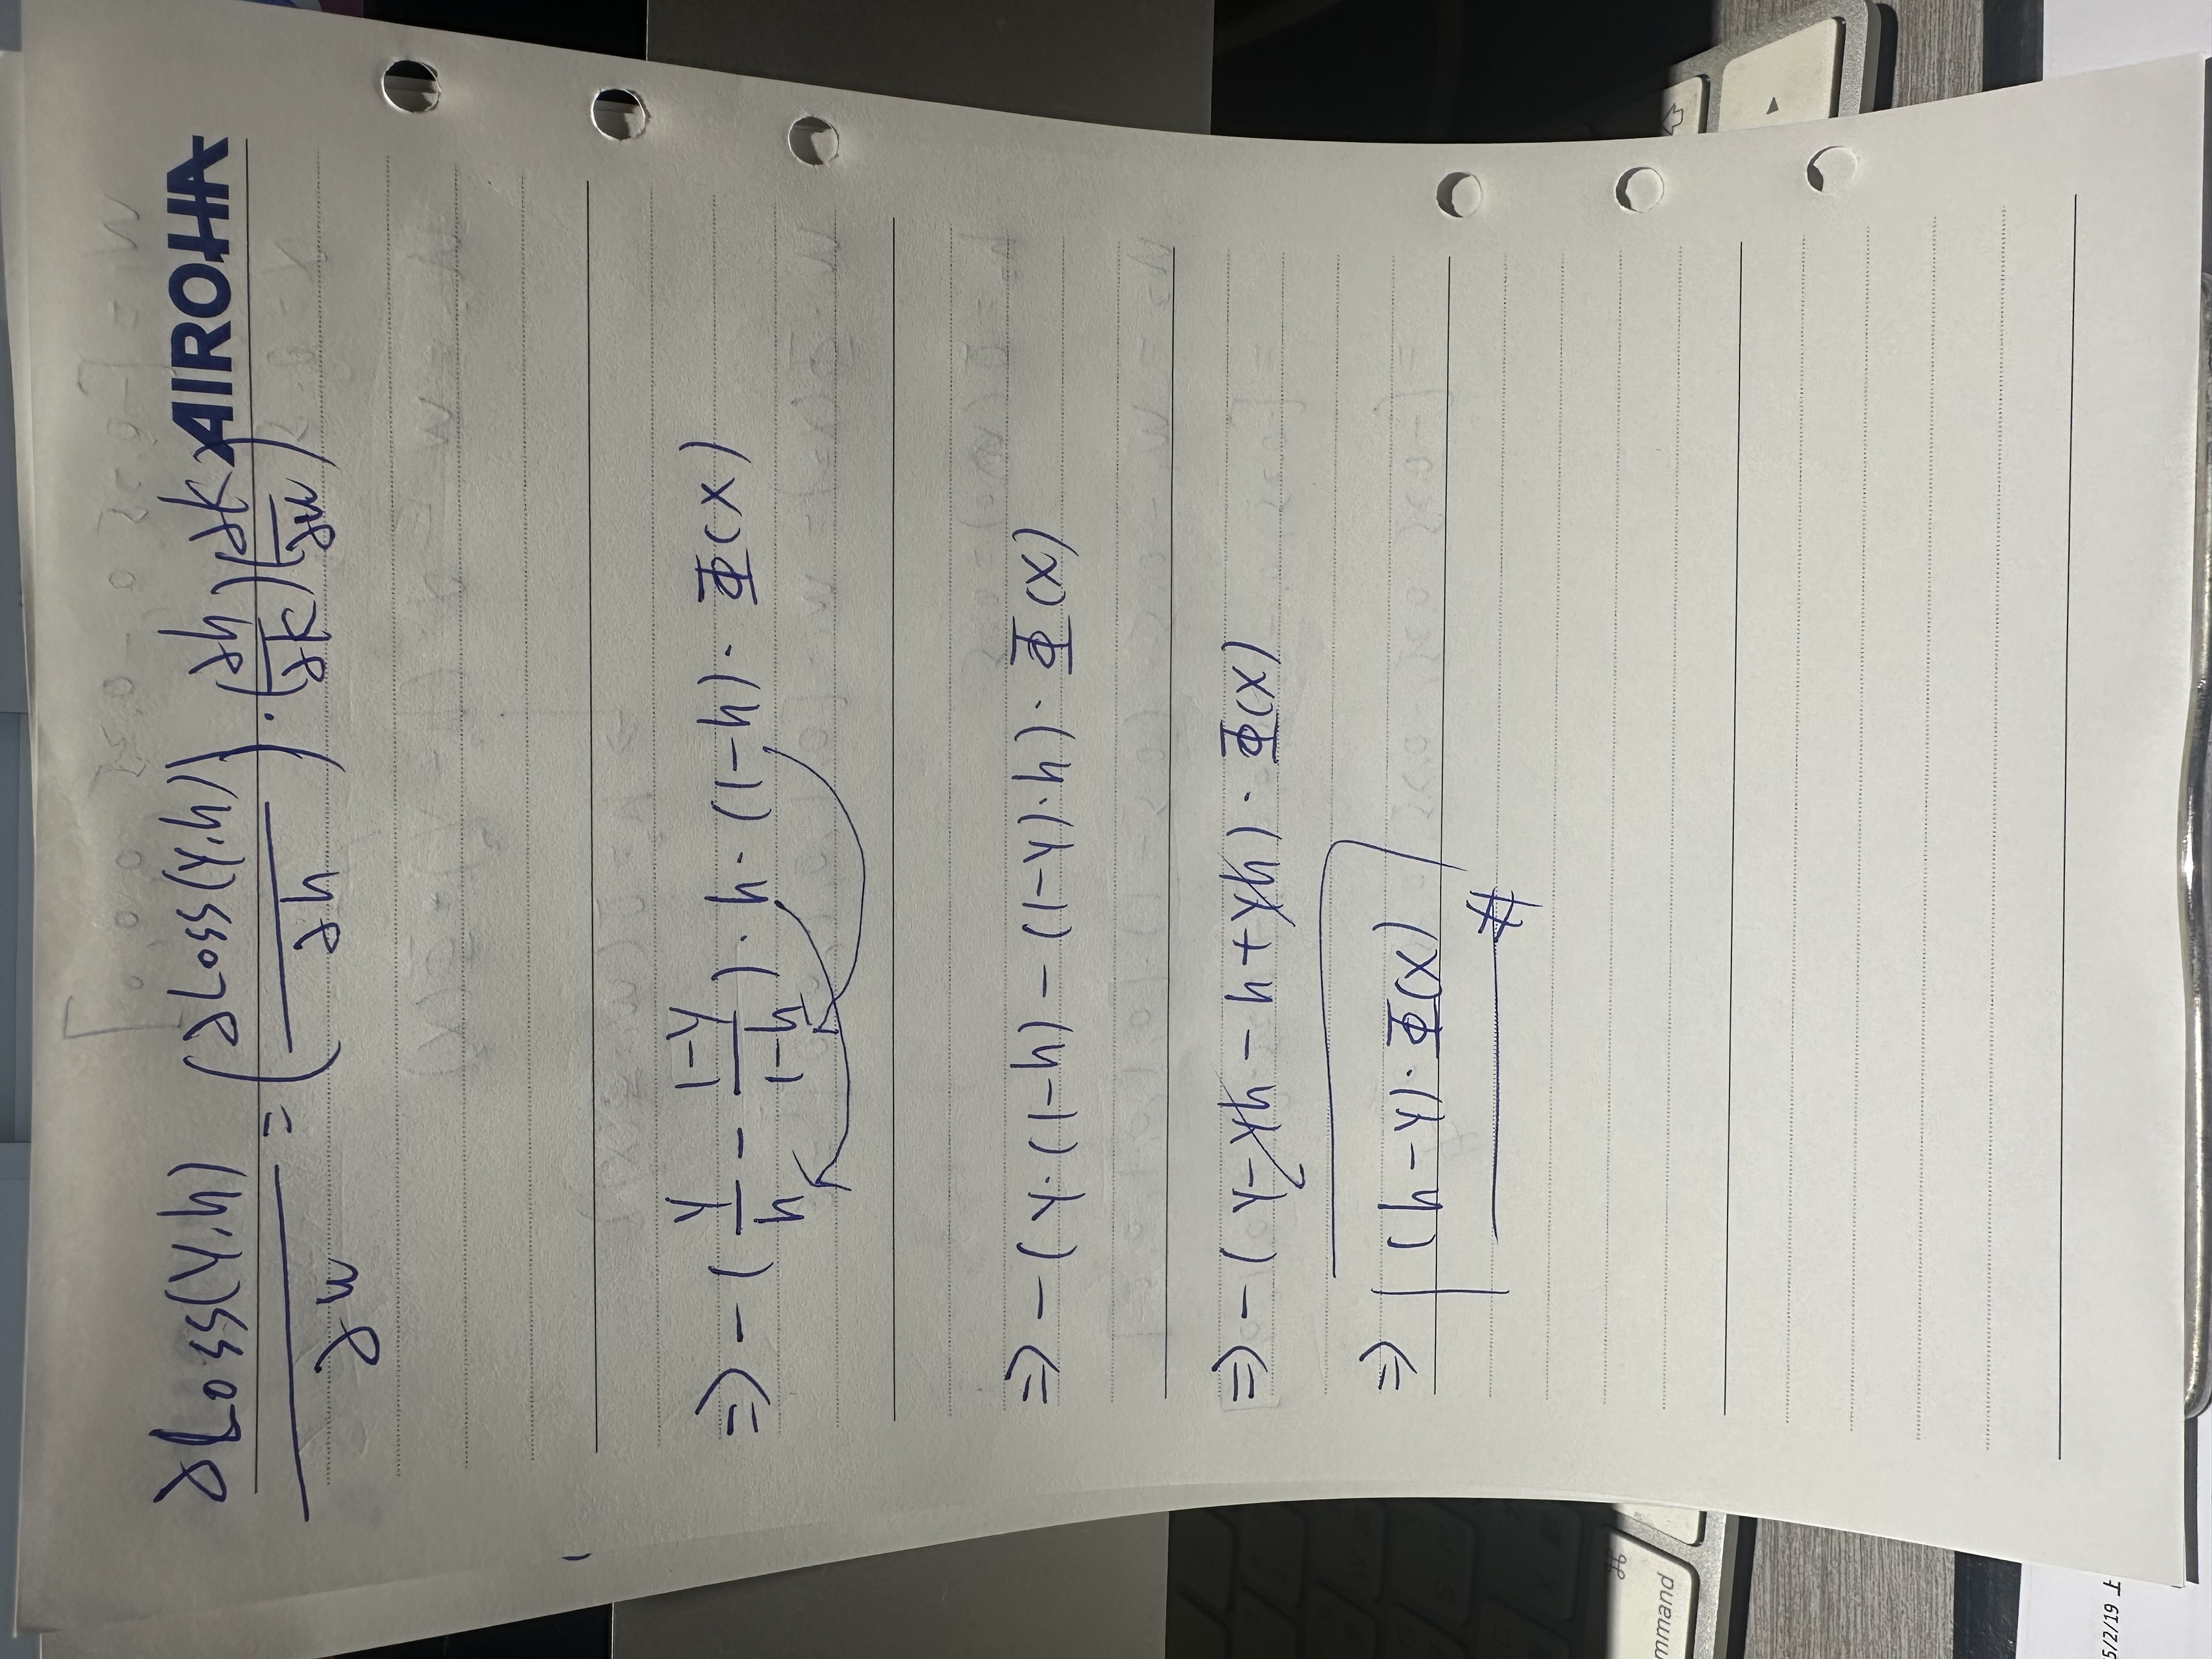 AIROHA
∂Loss(y,h)/∂w = (∂Loss(y,h)/∂h) · (∂h/∂k)(∂k/∂w)
=> -(y/h - (1-y)/(1-h)) · h · (1-h) · Φ(x)
=> -(y·(1-h) - (1-y)·h) · Φ(x)
=> -(y-yh-h+yh) · Φ(x)
=> (h-y)·Φ(x) #
⌘
mmand
5/2/19 上